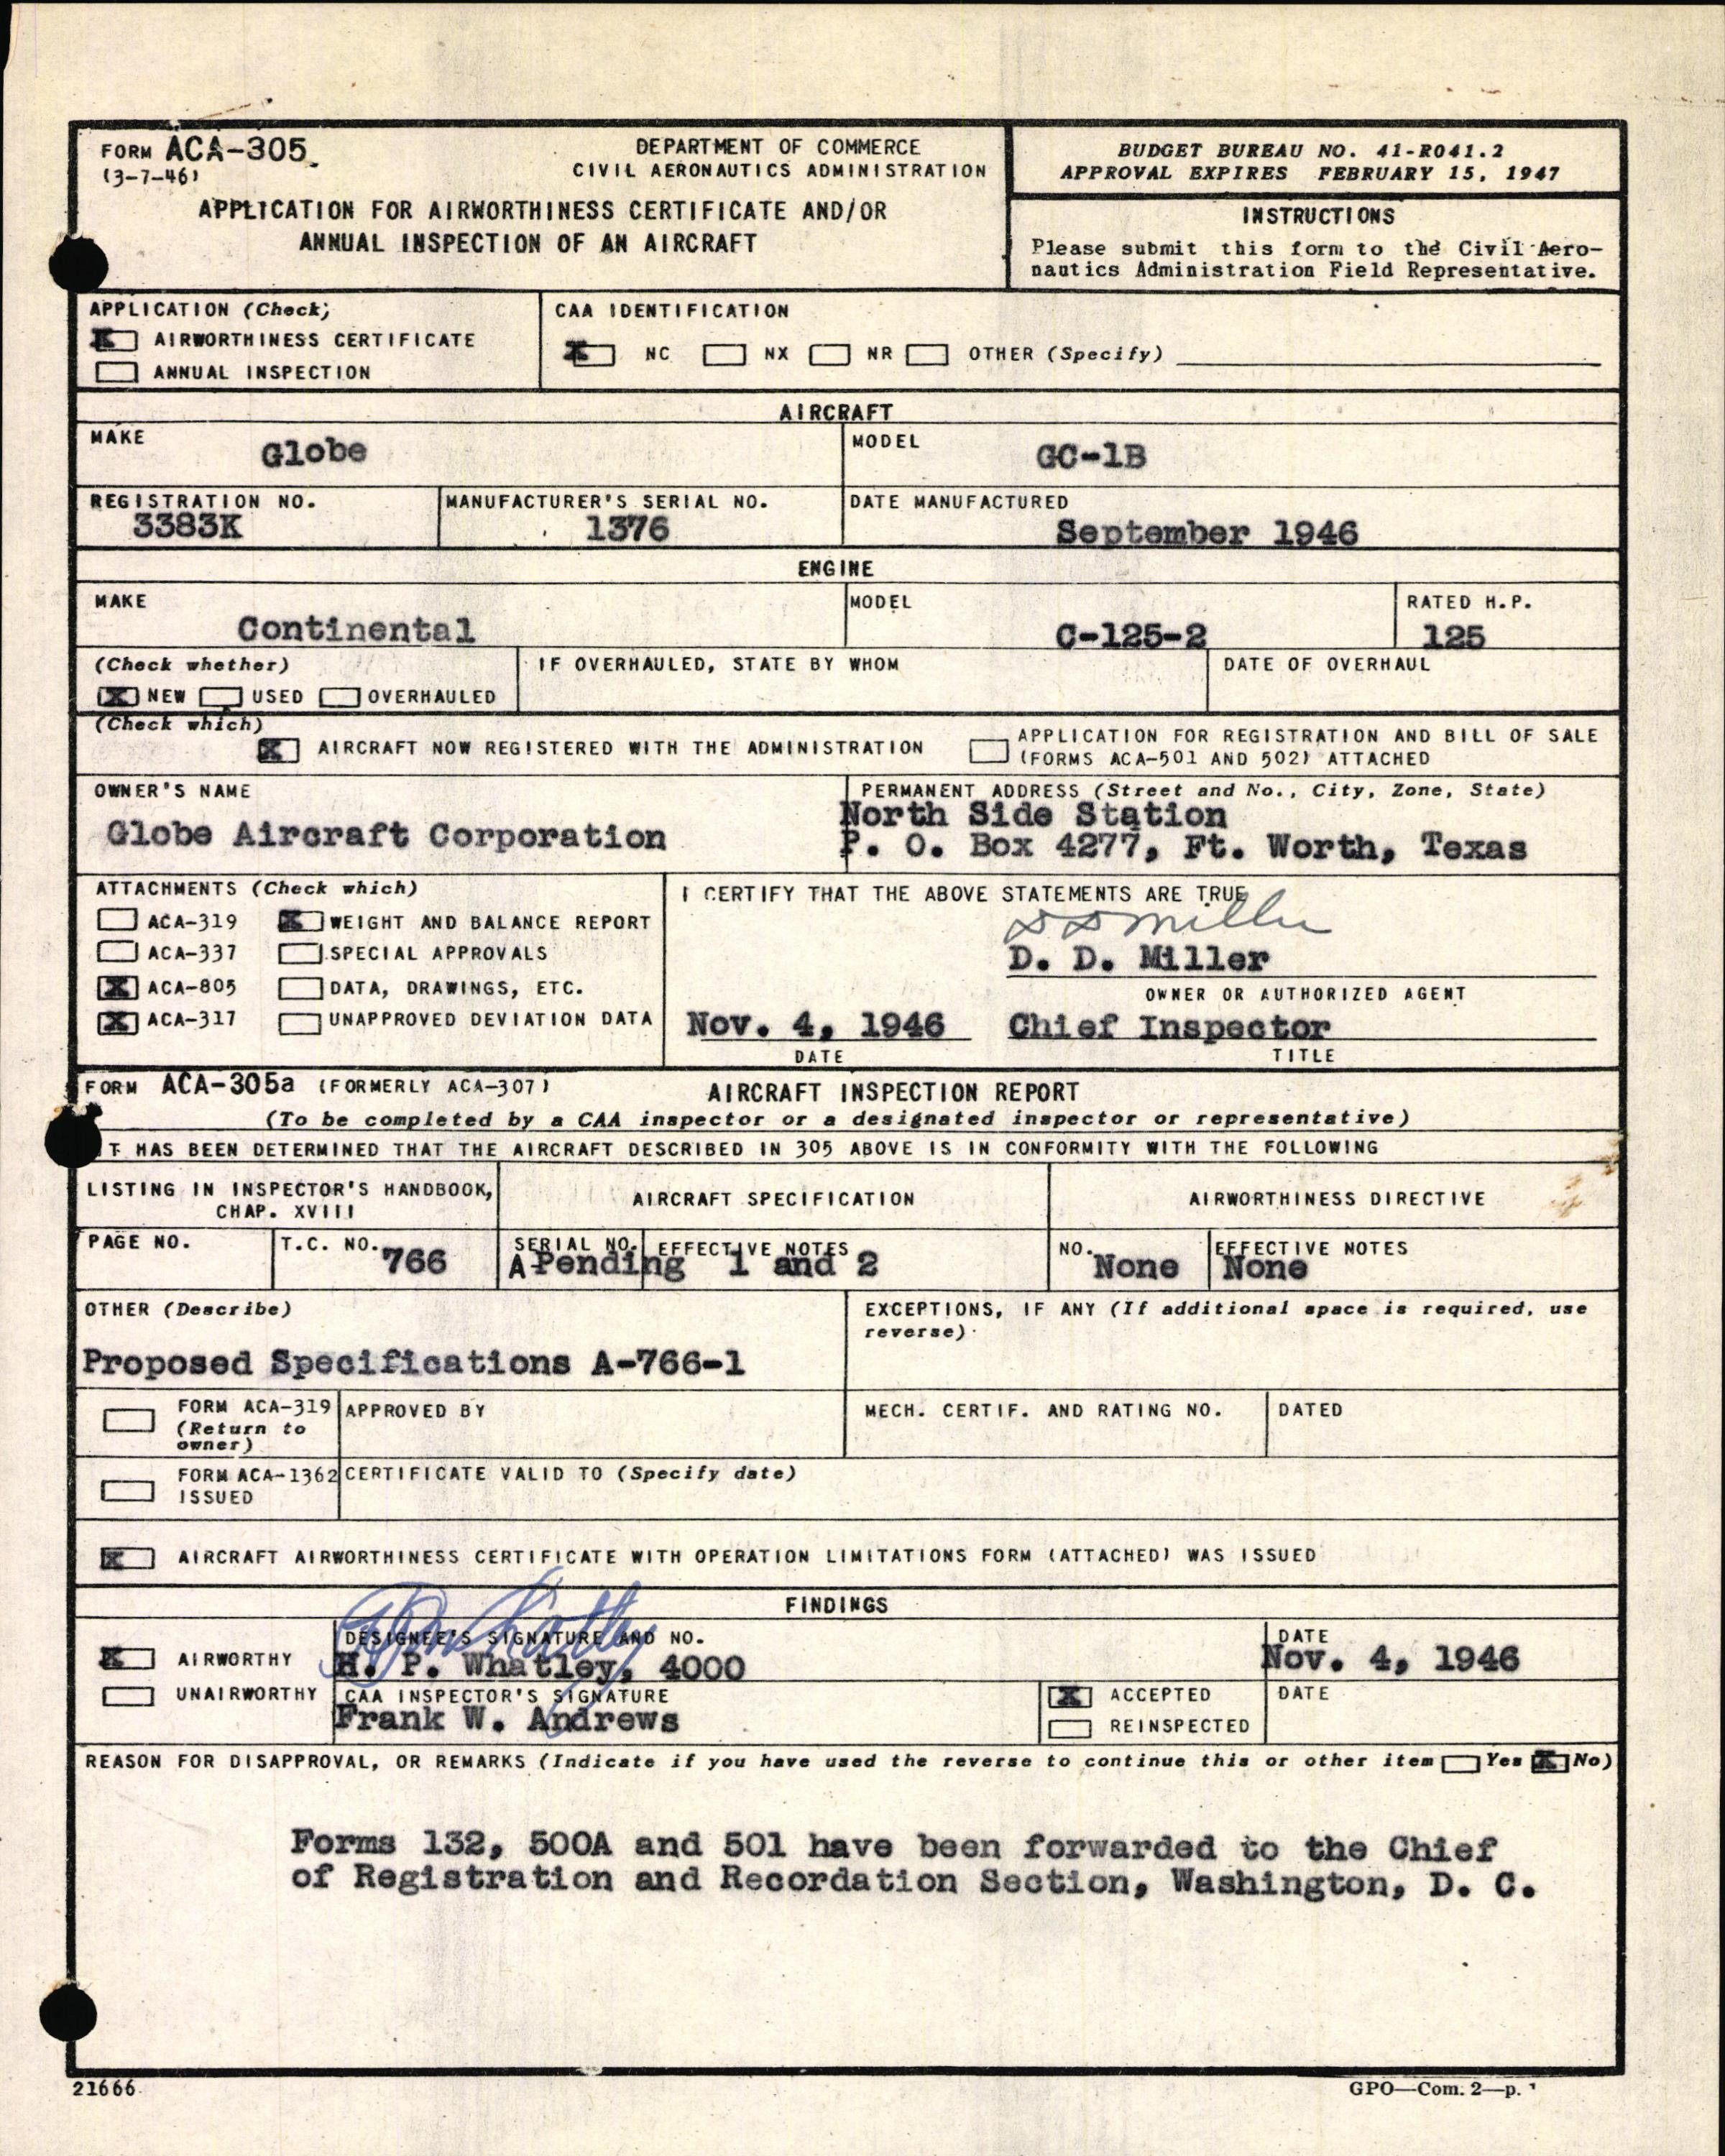 FORM ACA-305
(3-7-46)
DEPARTMENT OF COMMERCE
CIVIL AERONAUTICS ADMINISTRATION
APPLICATION FOR AIRWORTHINESS CERTIFICATE AND/OR
ANNUAL INSPECTION OF AN AIRCRAFT
BUDGET BUREAU NO. 41-R041.2
APPROVAL EXPIRES FEBRUARY 15, 1947
INSTRUCTIONS
Please submit this form to the Civil Aero-
nautics Administration Field Representative.
APPLICATION (Check)
X AIRWORTHINESS CERTIFICATE
ANNUAL INSPECTION
CAA IDENTIFICATION
X NC NX NR OTHER (Specify)
AIRCRAFT
MAKE
Globe
MODEL
GC-1B
REGISTRATION NO.
3383K
MANUFACTURER'S SERIAL NO.
1376
DATE MANUFACTURED
September 1946
ENGINE
MAKE
Continental
MODEL
C-125-2
RATED H.P.
125
(Check whether)
X NEW USED OVERHAULED
IF OVERHAULED, STATE BY WHOM
DATE OF OVERHAUL
(Check which)
X AIRCRAFT NOW REGISTERED WITH THE ADMINISTRATION
APPLICATION FOR REGISTRATION AND BILL OF SALE
(FORMS ACA-501 AND 502) ATTACHED
OWNER'S NAME
Globe Aircraft Corporation
PERMANENT ADDRESS (Street and No., City, Zone, State)
North Side Station
P. O. Box 4277, Ft. Worth, Texas
ATTACHMENTS (Check which)
ACA-319 X WEIGHT AND BALANCE REPORT
ACA-337 SPECIAL APPROVALS
X ACA-805 DATA, DRAWINGS, ETC.
X ACA-317 UNAPPROVED DEVIATION DATA
I CERTIFY THAT THE ABOVE STATEMENTS ARE TRUE
D D Miller
D. D. Miller
OWNER OR AUTHORIZED AGENT
Nov. 4, 1946 Chief Inspector
DATE TITLE
FORM ACA-305a (FORMERLY ACA-307) AIRCRAFT INSPECTION REPORT
(To be completed by a CAA inspector or a designated inspector or representative)
IT HAS BEEN DETERMINED THAT THE AIRCRAFT DESCRIBED IN 305 ABOVE IS IN CONFORMITY WITH THE FOLLOWING
LISTING IN INSPECTOR'S HANDBOOK,
CHAP. XVIII
AIRCRAFT SPECIFICATION
AIRWORTHINESS DIRECTIVE
PAGE NO.
T.C. NO. 766
SERIAL NO. EFFECTIVE NOTES
A Pending 1 and 2
NO. None
EFFECTIVE NOTES
None
OTHER (Describe)
Proposed Specifications A-766-1
EXCEPTIONS, IF ANY (If additional space is required, use
reverse)
FORM ACA-319
(Return to
owner)
APPROVED BY
MECH. CERTIF. AND RATING NO.
DATED
FORM ACA-1362
ISSUED
CERTIFICATE VALID TO (Specify date)
X AIRCRAFT AIRWORTHINESS CERTIFICATE WITH OPERATION LIMITATIONS FORM (ATTACHED) WAS ISSUED
FINDINGS
X AIRWORTHY
UNAIRWORTHY
DESIGNEE'S SIGNATURE AND NO.
H. P. Whatley, 4000
DATE
Nov. 4, 1946
CAA INSPECTOR'S SIGNATURE
Frank W. Andrews
X ACCEPTED
REINSPECTED
DATE
REASON FOR DISAPPROVAL, OR REMARKS (Indicate if you have used the reverse to continue this or other item Yes X No)
Forms 132, 500A and 501 have been forwarded to the Chief
of Registration and Recordation Section, Washington, D. C.
21666
GPO—Com. 2—p.